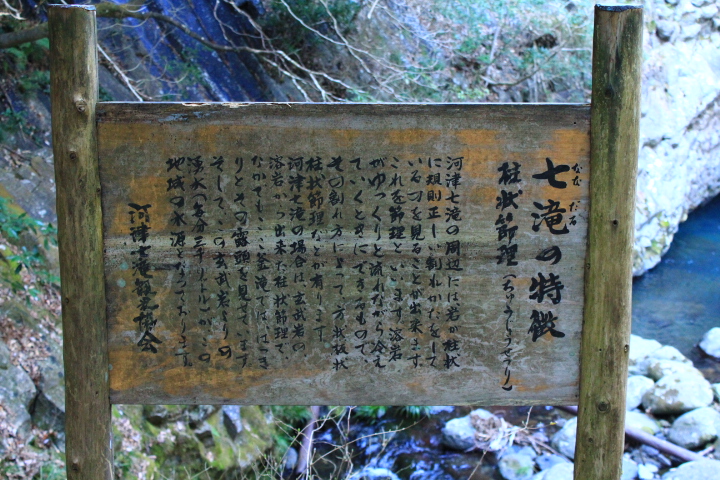 七滝の特徴
なな だる
柱状節理(ちゅうじょうせつり)
河津七滝の周辺には岩が柱状
に規則正しい割れかたをして
いるのを見ることが出来ます。
これを節理といいます。溶岩
がゆっくりと流れながら冷え
ていくときにできるもので、
その割れ方によって、方状板状
柱状節理などが有ります。
河津七滝の場合は、玄武岩の
溶岩から出来た柱状節理で、
なかでも、ここ釜滝では、はっき
りとその露頭を見せています
そして、この玄武岩よりの
湧水(毎分三千リットル)が、この
地域の水源となっております。
河津七滝観光協会